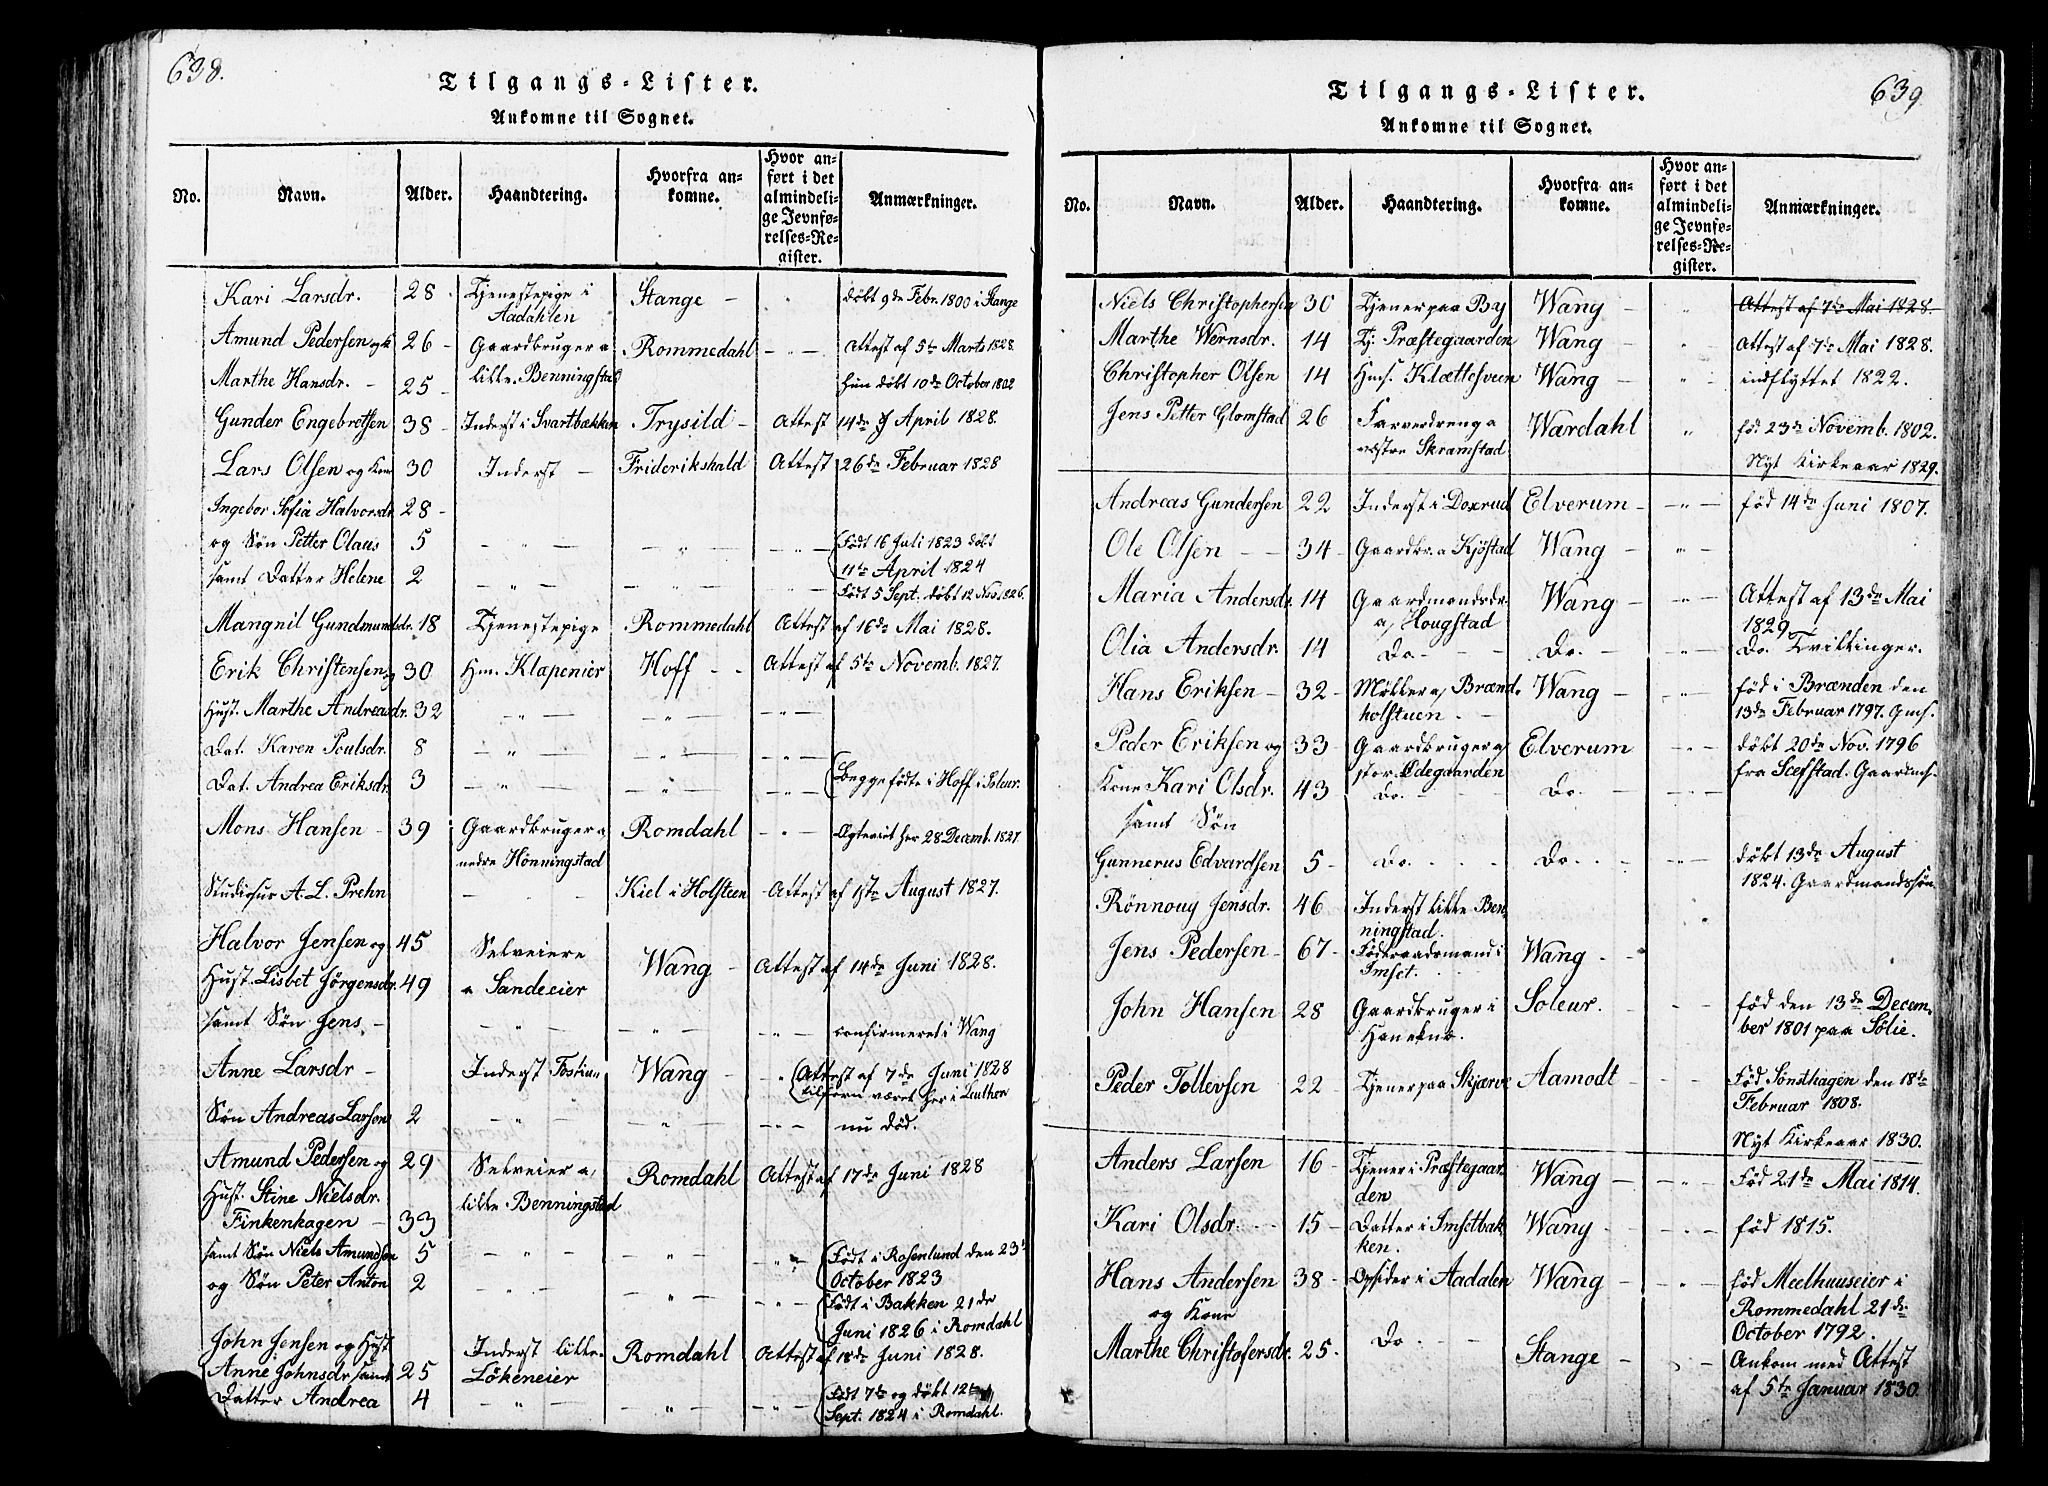 638.
Tilgangs-Lister.
Ankomne til Sognet.
No. Navn. Alder. Haandtering. Hvorfra ankomne. Hvor anført i det almindelige Jevnførelses-Register. Anmærkninger.
Kari Larsdr. 28 Tjenestepige i Aadahlen Stange døbt 9de Febr. 1800 i Stange
Amund Pedersen og 26 Gaardbruger a Rommedahl Attest af 5te Marts 1828.
Marthe Hansdr. 25 lille Benningstad hun døbt 10de October 1802
Gunder Engebretsen 38 Inderst i Svartbækken Trysild Attest 14de April 1828.
Lars Olsen og Kone 30 Inderst Friderikshald Attest 26de Februar 1828
Ingebor Sofia Halvorsdr. 28
og Søn Petter Olaus 5 Født 16 Juli 1823 døbt
11te April 1824
samt Datter Helene 2 Født 5 Sept. døbt 12 Nov. 1826.
Mangnil Gundmundsdr. 18 Tjenestepige Rommedahl Attest af 16de Mai 1828.
Erik Christensen og 30 Hm. Klapenier Hoff Attest af 5te Novemb. 1827.
Hust. Marthe Andreasdr. 32
Dat. Karen Poulsdr. 8
Dat. Andrea Eriksdr. 3 Begge fødte i Hoff i Soleur.
Mons Hansen 39 Gaardbruger a Romdahl Egteviet her 28 Decemb. 1827.
nedre Hönningstad
Studiosus A. L. Prehn Kiel i Holsteen Attest af 1ste August 1827.
Halvor Jensen og 45 Selveiere Wang Attest af 14de Juni 1828.
Hust. Lisbet Jörgensdr. 49 a Sandeeier
samt Søn Jens confirmeret i Wang
Anne Larsdr Inderst Wang Attest af 7de Juni 1828
tilforn været her i Leuthen
Søn Andreas Larsen 2 nu död.
Amund Pedersen og 29 Selveier a/ Romdahl Attest af 17de Juni 1828
Hust. Stine Nielsdr. lille Benningstad
Finkenhagen 33
samt Søn Niels Amundsen 5 Født i Rosenlund den 23
October 1823
og Søn Peter Anton 2 Født i Bakken 21de
Juni 1826 i Romdahl
John Jensen og Hust Inderst lille Romdahl Attest af 18de Juni 1828.
Anne Johnsdr samt 25 Lökeneier
Datter Andrea 4 Født 7de og døbt 12te
Sept. 1824 i Romdahl.
639
Tilgangs-Lister.
Ankomne til Sognet.
No. Navn. Alder. Haandtering. Hvorfra ankomne. Hvor anført i det almindelige Jevnførelses-Register. Anmærkninger.
Niels Christophersen 30 Tjener paa By Wang Attest af 7de Mai 1828.
Marthe Wernsdr. 14 Tj: Præstegaarden Wang Attest af 7de Mai 1828.
Christopher Olsen 14 Hms. Klættesveen Wang indflyttet 1822.
Jens Petter Glomstad 26 Farverdreng a Wardahl fød 23de Novemb. 1802.
vestre Skramstad
Nyt Kirkeaar 1829.
Andreas Gundersen 22 Inderst i Doxrud Elverum fød 14de Juni 1807.
Ole Olsen 34 Gaardbr. a Kjöstad Wang
Maria Andersdr. 14 Gaardmandsdr. Wang Attest af 13de Mai
a/ Hougstad 1829
Olia Andersdr. 14 Do. Do. Do. Tvillinger.
Hans Eriksen 32 Møller a/ Brænd- Wang fød i Brænden den
holstuen. 13de Februar 1797. Gms.
Peder Eriksen og 33 Gaardbruger a/ Elverum døbt 20de Nov. 1796
stor Ødegaarden fra Scefstad. Gaardms.
Kone Kari Olsdr. 43 Do. Do.
samt Søn
Gunnerus Edvardsen 5 Do. Do. døbt 13de August
1824. Gaardmandssøn
Rönnouy Jensdr. 46 Inderst lille Ben-
ningstad.
Jens Pedersen 67 Føderaadsmand i Wang
Imset.
John Hansen 28 Gaardbruger i Soleur. fød den 13de Decem-
ber 1801 paa Solie.
Peder Tollevsen 22 Tjener paa Skjærve Aamodt Fød Sonsthagen den 18de
Februar 1808.
Nyt Kirkeaar 1830.
Anders Larsen 16 Tjener i Præstegaar- Wang Fød 21de Mai 1814.
den
Kari Olsdr. 15 Datter i Imsetbak- Wang fød 1815.
ken.
Hans Andersen 38 Opsider i Aadalen Wang fød Meelhuuseier i
og Kone Rommedahl 21de
October 1792.
Marthe Christofersdr. 25 Do Stange Ankom med Attest
af 5te Januar 1830